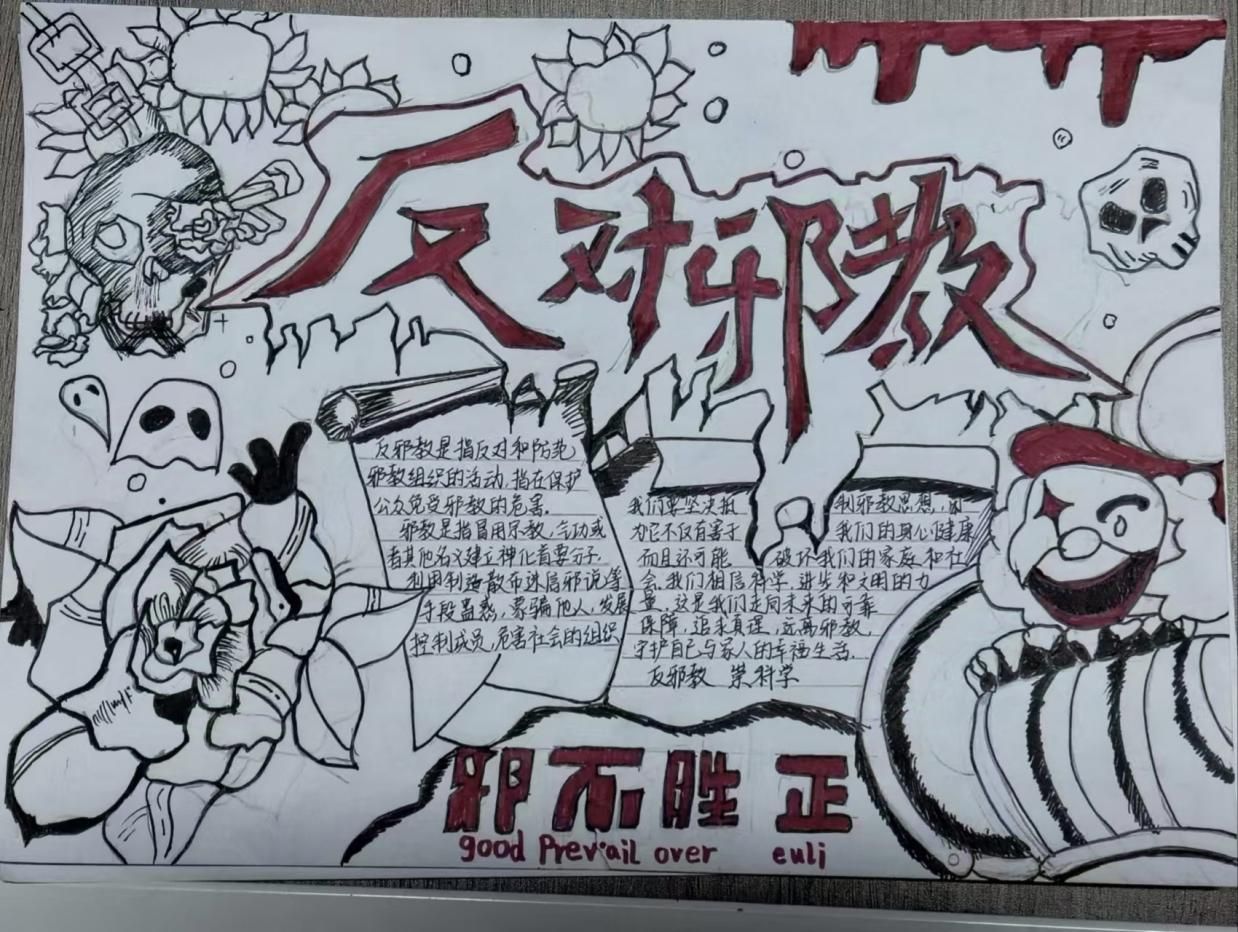 反对邪教
反邪教是指反对和防范
邪教组织的活动,指在保护
公众免受邪教的危害.
邪教是指冒用宗教、气功或
者其他名义建立神化首要分子.
利用制造散布迷信邪说等
手段蛊惑,蒙骗他人,发展
控制成员,危害社会的组织
我们要坚决抵 制邪教思想,因
为它不仅有害于 我们的身心健康
而且还可能 破坏我们的家庭和社
会,我们相信科学,进步和文明的力
量,这是我们走向未来的可靠
保障,追求真理,远离邪教,
守护自己与家人的幸福生活.
反邪教 崇科学
邪不胜正
good Prevail over euli